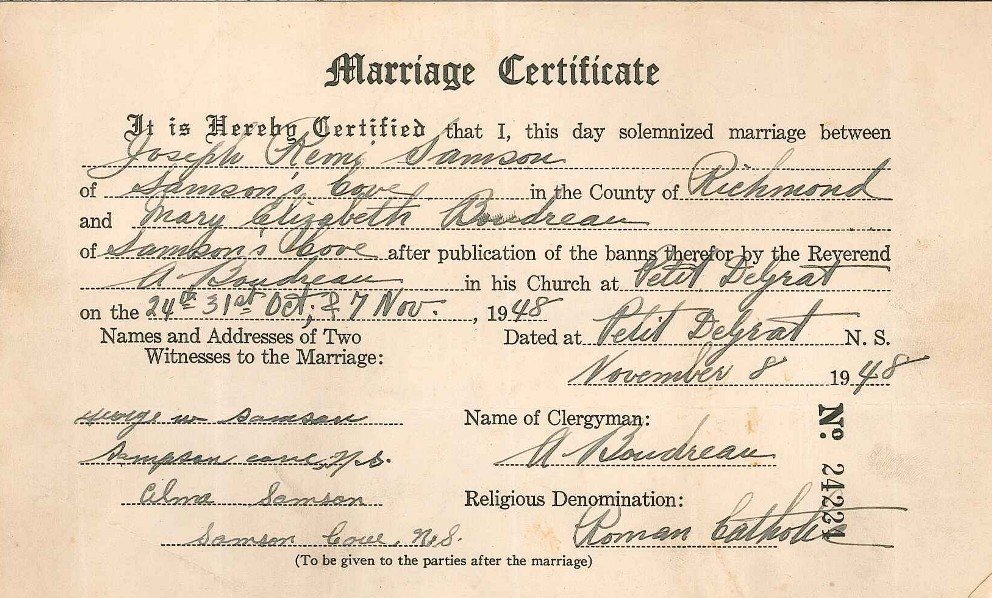 Marriage Certificate
It is Hereby Certified that I, this day solemnized marriage between
Joseph Remi Samson
of Samson's Cove in the County of Richmond
and Mary Elizabeth Boudreau
of Samson's Cove after publication of the banns therefor by the Reverend
A Boudreau in his Church at Petit DeGrat
on the 24th 31st Oct; & 7 Nov. , 1948
Names and Addresses of Two
Witnesses to the Marriage:
Dated at Petit DeGrat N. S.
November 8 1948
George w Samson
Sampson cove, N.S.
Alma Samson
Samson Cove, N.S.
Name of Clergyman:
A Boudreau
Religious Denomination:
Roman Catholic
No. 24224
(To be given to the parties after the marriage)